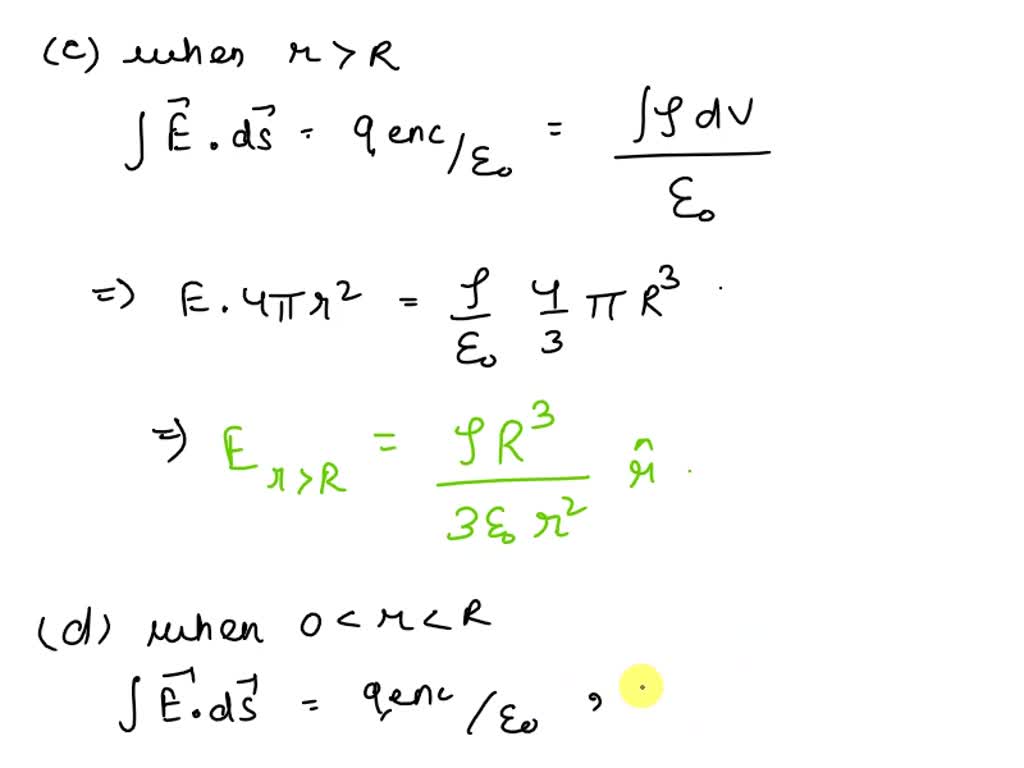 (c) when r > R
∫ E⃗ . ds⃗ = q enc / ε₀ = ∫ρ dV / ε₀
=) E . 4πr² = ρ/ε₀ 4/3 π R³ .
=) E r>R = ρR³ / 3ε₀ r² r̂ .
(d) when 0 < r < R
∫ E⃗ . ds⃗ = qenc / ε₀ ,